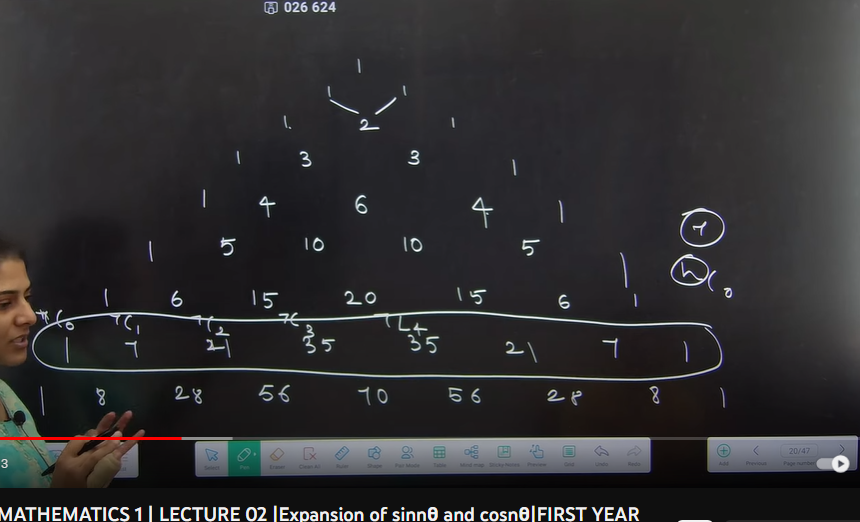 026 624
1
1 1
1 2 1
1 3 3 1
1 4 6 4 1
1 5 10 10 5 1
7
nC0
1 6 15 20 15 6 1
7C0 7C1 7C2 7C3 7C4
1 7 21 35 35 21 7 1
1 8 28 56 70 56 28 8 1
3
Select Pen Eraser Clear All Ruler Shape Table Mind map Preview Grid Undo Redo Add Previous 20/47 Page number
MATHEMATICS 1 | LECTURE 02 |Expansion of sinnθ and cosnθ|FIRST YEAR